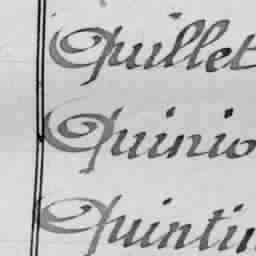 Quillet
Quinio
Quintin